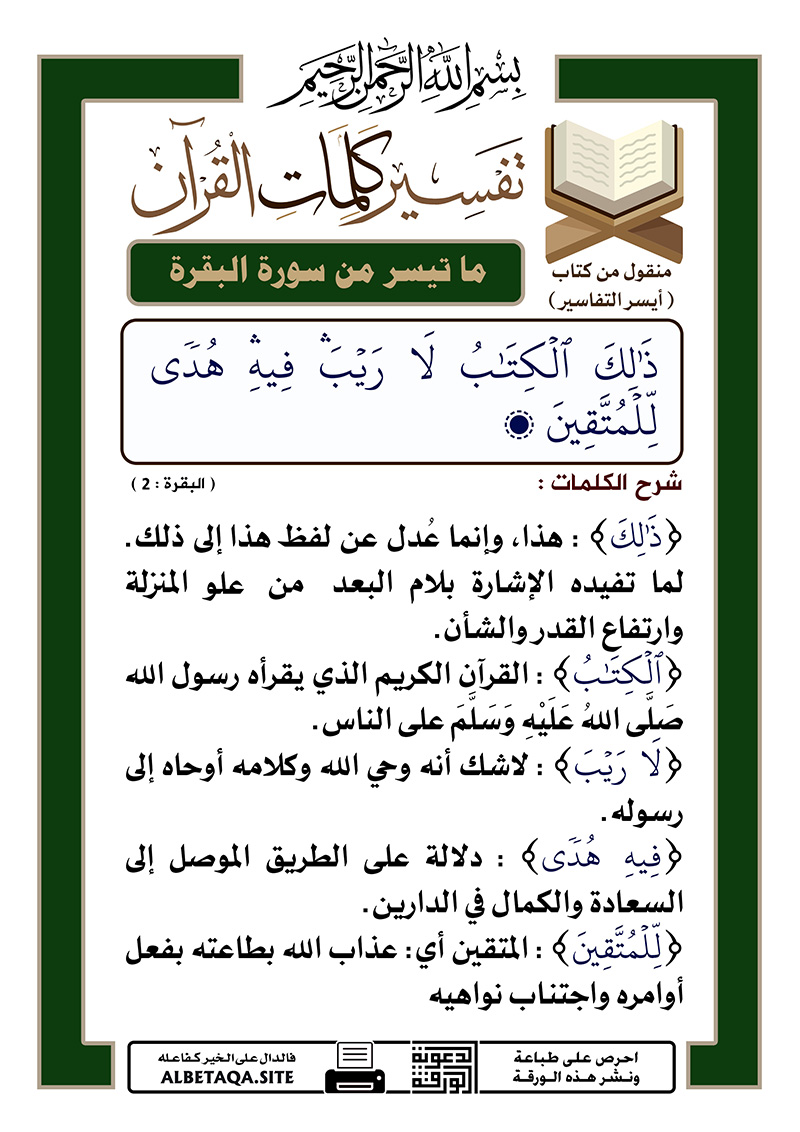 بِسْمِ اللَّهِ الرَّحْمَٰنِ الرَّحِيمِ
تَفْسِير كَلِمَاتِ القُرْآن
منقول من كتاب
( أيسر التفاسير )
ما تيسر من سورة البقرة
ذَٰلِكَ ٱلْكِتَـٰبُ لَا رَيْبَ ۛ فِيهِ ۛ هُدًى
لِّلْمُتَّقِينَ
شرح الكلمات :
( البقرة : 2 )
﴿ذَٰلِكَ﴾ : هذا، وإنما عُدل عن لفظ هذا إلى ذلك.
لما تفيده الإشارة بلام البعد من علو المنزلة
وارتفاع القدر والشأن.
﴿ٱلْكِتَـٰبُ﴾ : القرآن الكريم الذي يقرأه رسول الله
صَلَّى اللهُ عَلَيْهِ وَسَلَّمَ على الناس.
﴿لَا رَيْبَ﴾ : لاشك أنه وحي الله وكلامه أوحاه إلى
رسوله.
﴿فِيهِ هُدًى﴾ : دلالة على الطريق الموصل إلى
السعادة والكمال في الدارين.
﴿لِّلْمُتَّقِينَ﴾ : المتقين أي: عذاب الله بطاعته بفعل
أوامره واجتناب نواهيه
احرص على طباعة
ونشر هذه الورقة
الورقة الدعوية
فالدال على الخير كفاعله
ALBETAQA.SITE